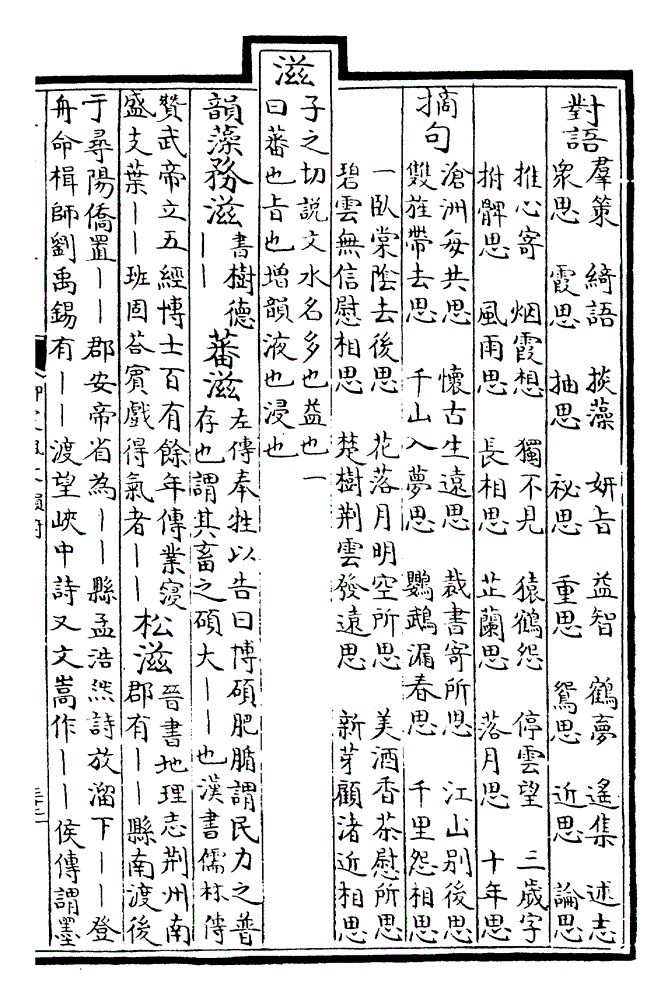 對語
羣策 綺語 掞藻 妍旨 益智 鶴夢 遙集 述志
衆思 霞思 抽思 祕思 重思 鴛思 近思 論思
推心寄 烟霞想 獨不見 猿鶴怨 停雲望 三歲字
拊髀思 風雨思 長相思 芷蘭思 落月思 十年思
摘句
滄洲每共思 懷古生遠思 裁書寄所思 江山別後思
雙旌帶去思 千山入夢思 鸚鵡漏春思 千里怨相思
一臥棠陰去後思 花落月明空所思 美酒香茶慰所思
碧雲無信慰相思 楚樹荆雲發遠思 新芽顧渚近相思
滋
子之切説文水名多也益也一
曰蕃也旨也增韻液也浸也
韻藻務滋
書樹德
丨丨
蕃滋
左傳奉牲以告曰博碩肥腯謂民力之普
存也謂其畜之碩大丨丨也漢書儒林傳
贊武帝立五經博士百有餘年傳業寖
盛支葉丨丨班固荅賓戲得氣者丨丨
松滋
晉書地理志荆州南
郡有丨丨縣南渡後
于尋陽僑置丨丨郡安帝省為丨丨縣孟浩然詩放溜下丨丨登
舟命楫師劉禹錫有丨丨渡望峽中詩又文嵩作丨丨侯傳謂墨